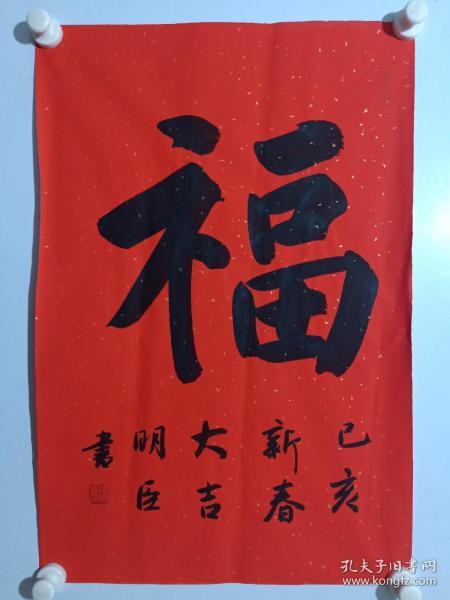 福
己亥
新春
大吉
明臣
書
孔夫子旧书网
www.kongfz.com